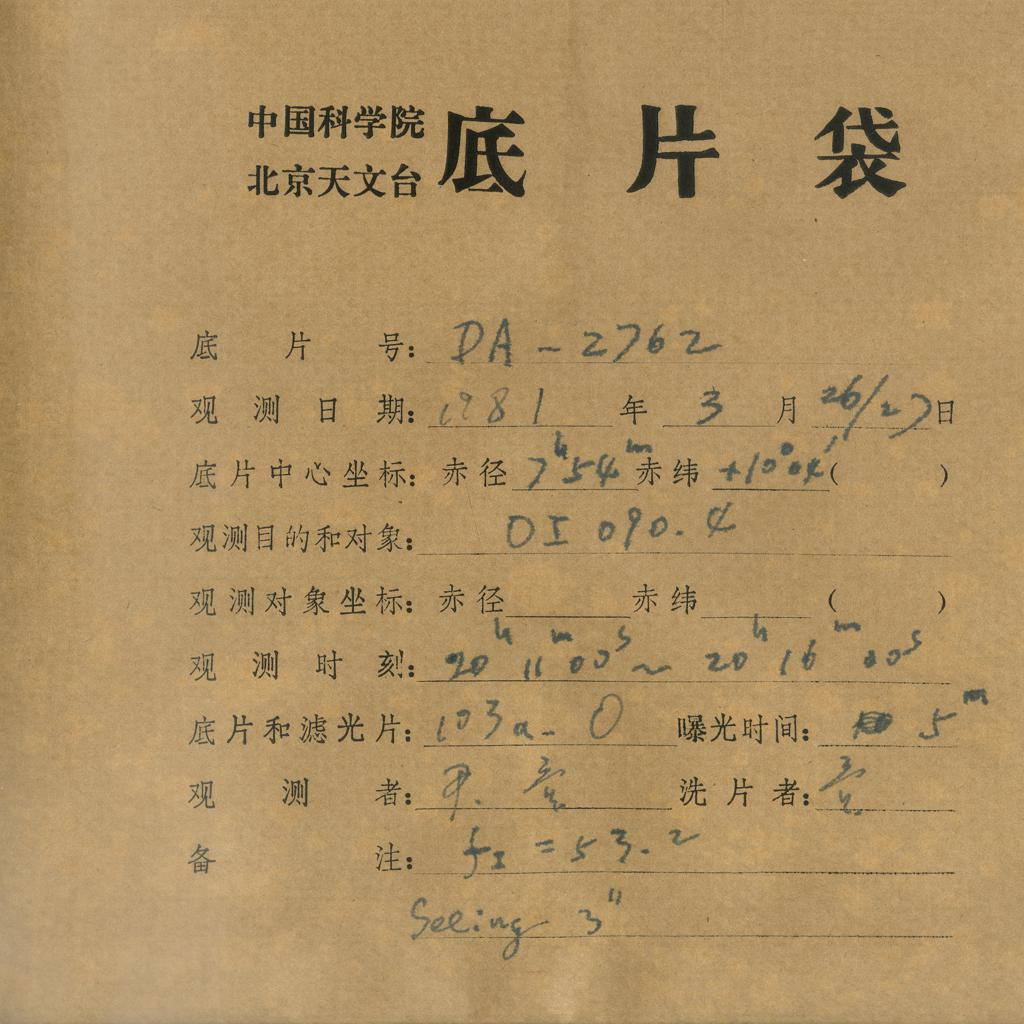 中国科学院
北京天文台
底片袋
底片号：DA-2762
观测日期：1981年3月26/27日
底片中心坐标：赤径7h54m赤纬+10°04′( )
观测目的和对象：OI 090.4
观测对象坐标：赤径 赤纬 ( )
观测时刻：20h11m00s~20h16m00s
底片和滤光片：103a-O 曝光时间：5m
观测者： 洗片者：
备注：fI=53.2
Seeing 3″